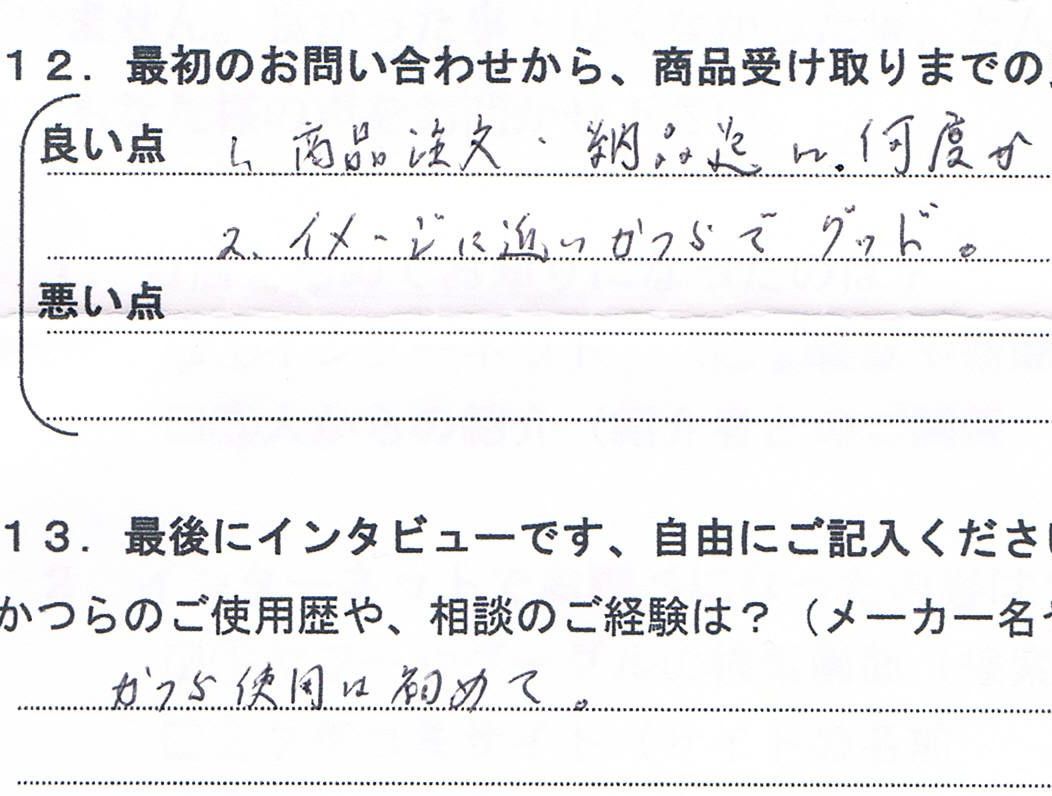 12. 最初のお問い合わせから、商品受け取りまでの
良い点 1、商品注文・納品迄に、何度か
2、イメージに近いかつらでグッド。
悪い点
13. 最後にインタビューです、自由にご記入くださ
かつらのご使用歴や、相談のご経験は？（メーカー名
かつら使用は初めて。